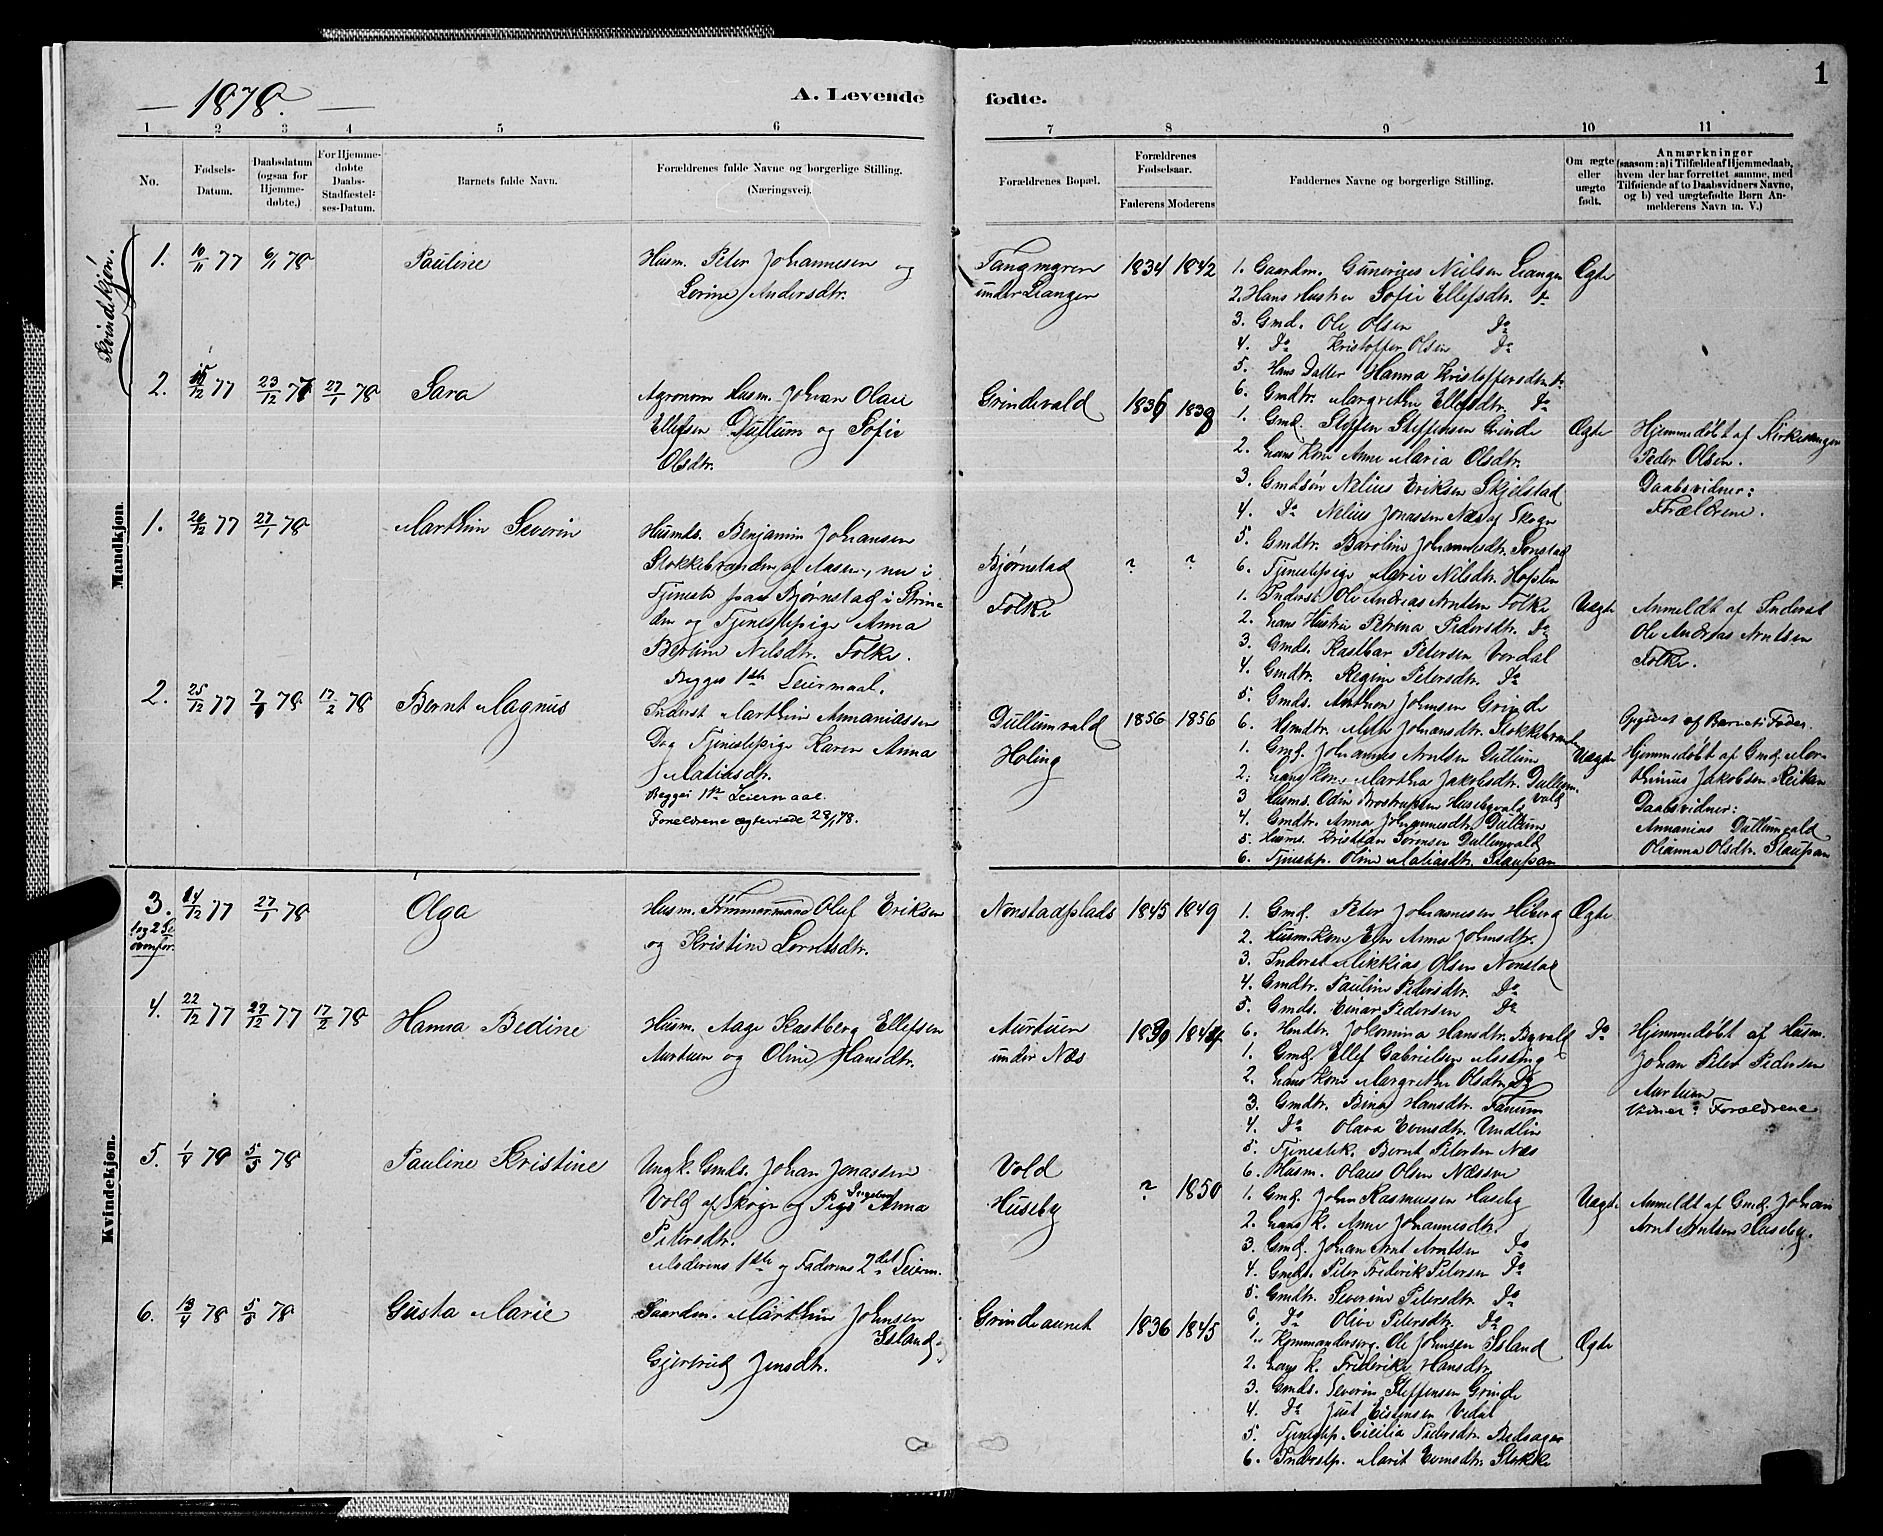 1
— 1878. —
A. Levende fødte.
1 2 3 4 5 6 7 8 9 10 11
No.
Fødsels-
Datum.
Daabsdatum
(ogsaa for
Hjemme-
døbte.)
For Hjemme-
døbte
Daabs-
Stadfæstel-
ses-Datum.
Barnets fulde Navn.
Forældrenes fulde Navne og borgerlige Stilling.
(Næringsvei).
Forældrenes Bopæl.
Forældrenes
Fødselsaar.
Faderens Moderens
Faddernes Navne og borgerlige Stilling.
Om ægte
eller
uægte
født.
Anmærkninger
(saasom: a) i Tilfælde af Hjemmedaab,
hvem der har forrettet samme, med
Tilføiende af to Daabsvidners Navne,
og b) ved uægtefødte Børn An-
melderens Navn m. V.)
Kvindekjøn.
1. 10/11 77 6/1 78 Pauline
Husm. Peter Johannesen og
Lorine Andersdtr.
under Langer
1834 1842
1. Gaardm. Nielsen Langer
2. Hans Hustru Sofie Ellefsdtr.
3. Gmd. Ole Olsen Do
4. Do Kristoffer Olsen Do
5. Hans Datter Hanna Kristoffersdtr.
6. Gmdtr. Margrethe Ellefsdtr. Do
Ægte
2. 77 23/12 77 27/1 78 Sara
Agronom Husm. Johan Olau
Ellefsen Dullum og Sofie
Olsdtr.
Grindevald
1836 1838
1. Gmd. Steffen Steffensen Grinde
2. hans Kone Anne Maria Olsdtr.
3. Gmdsøn Nelius Eriksen Skjelstad
4. Do Nelius Jonassen Næs af Skogn
5. Gmdtr. Baroline Johannesdtr. Sonstad
6. Tjenestepige Marie Nilsdtr. Hopla
Ægte
Hjemmedøbt af Kirkesanger
Peder Olsen.
Daabsvidner:
Forældrene.
Mandkjøn.
1. 26/12 77 27/1 78 Marthin Severin
Husmds. Benjamin Johansen
Stokkebranden af Aasen, nu i
Tjeneste paa Bjørnstad i Strin-
den og Tjenestepige Anna
Bertine Nelsdtr. Folke.
Begges 1ste Leiermaal.
Bjørnstad
Folke
? ?
1. Inderst Ole Andreas Arntsen Folke
2. hans Hustru Petrina Pedersdtr. Do
3. Gmds. Kastbar Petersen Vordal
4. Gmdtr. Regine Petersdtr. Do
5. Gmds. Anthon Johnsen Grinde
6. Husmdtr. Mette Johansdtr. Stokkebranden
Uægte
Anmeldt af Inderst
Ole Andreas Arntsen
Folke.
2. 25/12 77 7/1 78 17/2 78 Bernt Magnus
Inderst Marthin Annaniassen
Dog Tjenestepige Karen Anna
Matiasdtr.
Begges 1ste Leiermaal.
Forældrene ægteviede 28/1 78.
Dullumvald
Høling
1856 1856
1. Gmd. Johannes Arntsen Dullum
2. hans Kone Martha Jakobsdtr. Dullum
3. Husms. Odin Husebyvald
4. Gmdtr. Anna Johannesdtr. Dullum
5. Husms. Kristian Sørensen Dullumvald
6. Tjenestep. Oline Matiasdtr. Staupan
Uægte
Opgivet af Barnets Fader.
Hjemmedøbt af Gmd. Mor-
thinius Jakobsen Reitan
Daabsvidner:
Annanias Dullumvald
Johanna Olsdtr. Staupan
Kvindekjøn.
3.
1 og 2 Se
ovenfor.
14/12 77 27/1 78 Olga
Husm. Tømmermand Oluf Eriksen
og Kristine Lorntsdtr.
Nonstadplads
1845 1849
1. Gmd. Peter Johannesen Hiberg
2. Husm.kone Ane Anna Johnsdtr.
3. Inderst Mikkias Olsen Nonstad
4. Gmdtr. Pauline Pedersdtr. Do
5. Gmds. Einar Pedersen Do
6. Hmdtr. Jokomina Hansdtr. Byvald
Ægte
4. 22/12 77 27/12 77 17/2 78 Hanna Bedine
Husm. Aage Kastberg Ellefsen
Aurtuen og Oline Hansdtr.
Aurtuen
under Næs
1839 1844
1. Gmd. Ellef Gabrielsen Messing
2. hans Kone Margrethe Olsdtr. Do
3. Gmdtr. Bina Hansdtr. Fanum
4. Do Olava Evensdtr. Undlin
5. Tjenestek. Bernt Petersen Næs
6. Husm. Olaus Olsen Næssvn
Do
Hjemmedøbt af Husm.
Johan Peter Pedersen
Aurtuen
Vidner: Forældrene
5. 1/4 78 5/5 78 Pauline Kristine
Ungk. Gmds. Johan Jonassen
Vold af Skogn og Pige Ingeborg Anna
Petersdtr.
Moderens 1ste og Faderens 2det Leierm.
Vold
Huseby
? 1850
1. Gmd. John Rasmussen Huseby
2. hans K. Anne Johannesdtr.
3. Gmd. Johan Arnt Arntsen Do
4. Gmds. Peter Frederik Petersen Do
5. Gmdtr. Severine Petersdtr. Do
6. Do Olive Petersdtr. Do
Uægte
Anmeldt af Gmd. Johan
Arnt Arntsen Huseby.
6. 13/4 78 5/5 78 Gusta Marie
Gaardm. Marthin Johnsen
Island,
Gjertrud Jensdtr.
Grindeaunet
1836 1845
1. Kommandersrg. Ole Johnsen Island
2. hans K. Frederikke Hansdtr.
3. Gmds. Severin Steffensen Grinde
4. Do Just Eistensen Vedal
5. Tjenestep. Cicilia Pedersdtr.
6. Inderstp. Marit Evensdtr. Stokke
Ægte